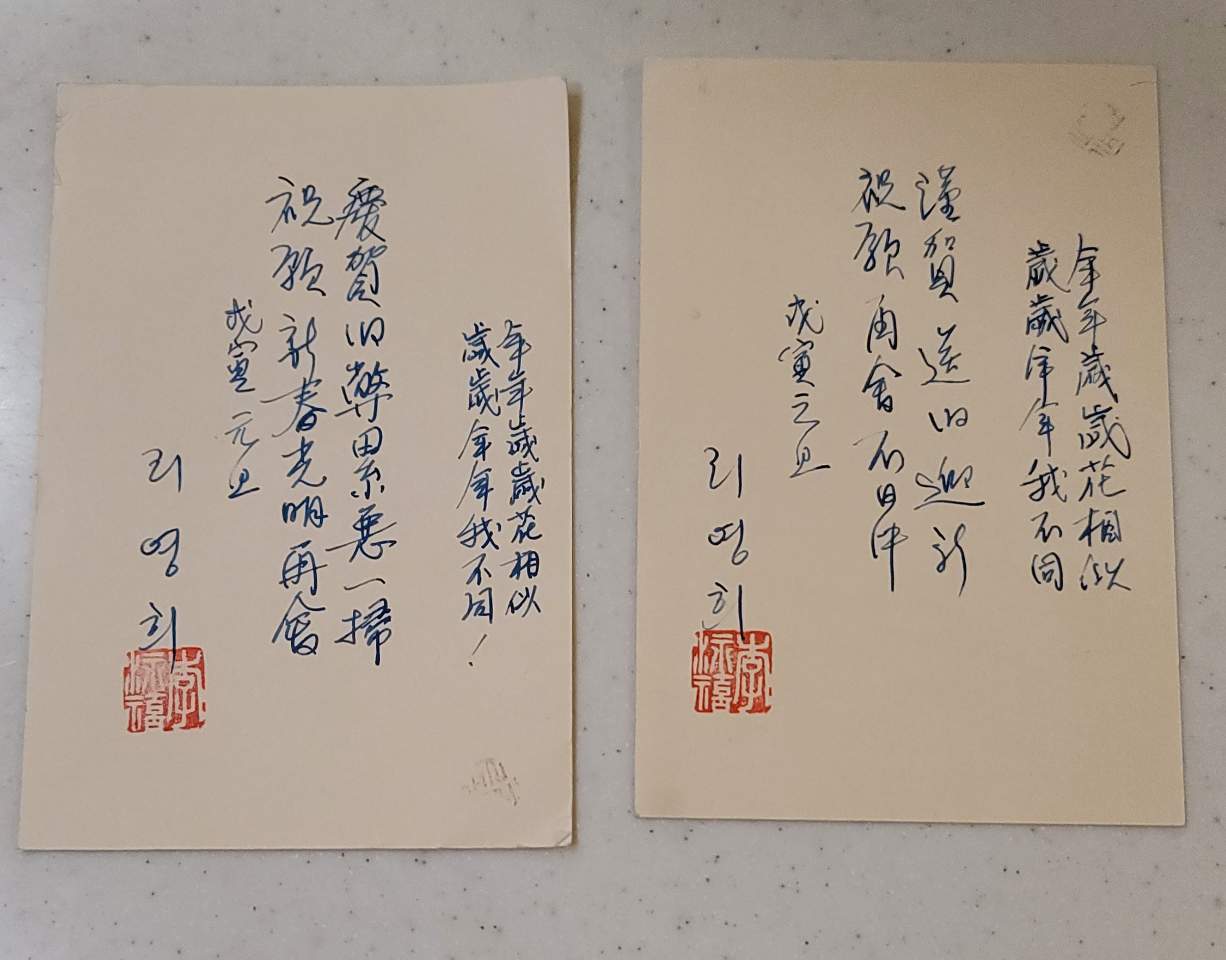 年年歲歲花相似
歲歲年年我不同!
慶賀旧弊田累悪一掃
祝願新春光明再會
戊寅元旦
리영희
李泳禧
年年歲歲花相似
歲歲年年我不同
謹賀送旧迎新
祝願再會不日中
戊寅元旦
리영희
李泳禧